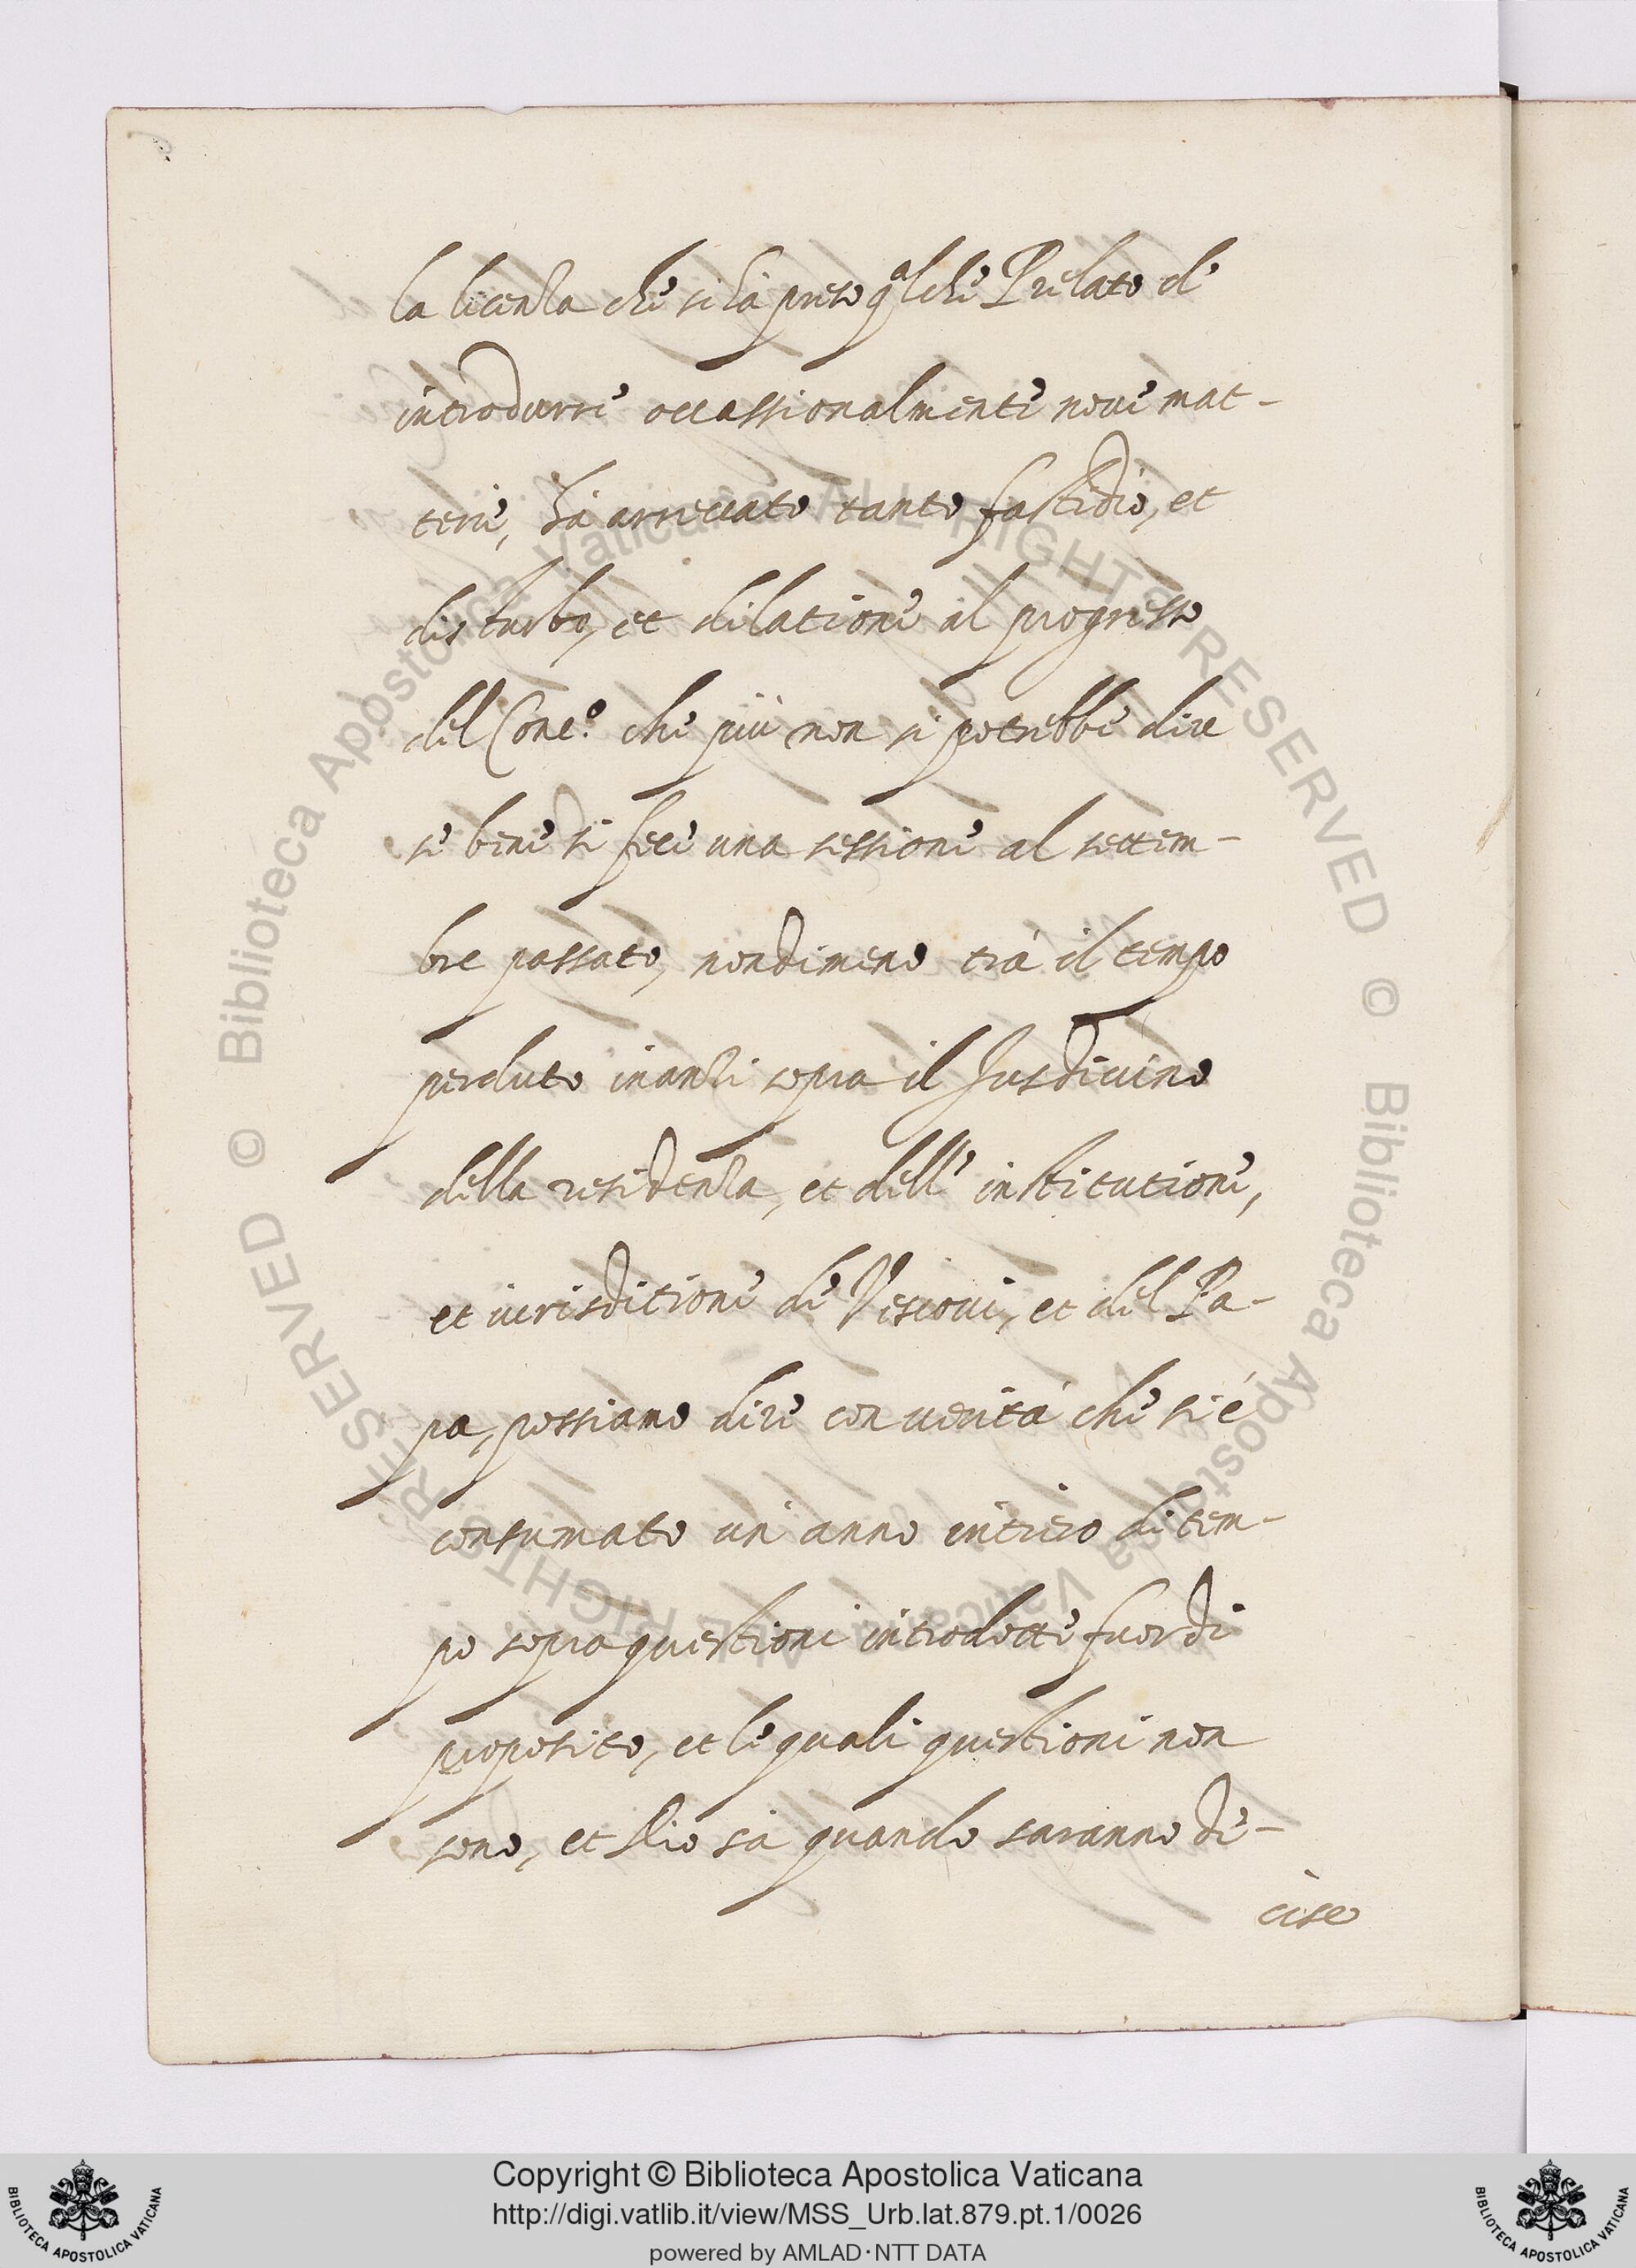 la licenza che si hà preso q.alche Prelato d'
introdurre occassionalmente noue mat-
terie, hà arrecato tanto fastidio, et
disturbo, et dilatione al progresso
del Conc.o che più non si potrebbe dire
se bene si fece una sessione al settem-
bre passato, nondimeno trà il tempo
perduto inanzi sopra il Jus diuino
della residenza, et dell' institutione,
et iurisditione de Vescoui, et del Pa-
pa, possiamo dire con uerità che si é
consumato un' anno intiero di tem-
po sopra questioni introdotte fuor di
proposito, et le quali questioni non
sono, et Dio sà quando saranno de-
cise
© Biblioteca Apostolica Vaticana ALL RIGHTS RESERVED © Biblioteca Apostolica Vaticana ALL RIGHTS RESERVED
Copyright © Biblioteca Apostolica Vaticana
http://digi.vatlib.it/view/MSS_Urb.lat.879.pt.1/0026
powered by AMLAD·NTT DATA
BIBLIOTECA APOSTOLICA VATICANA
BIBLIOTECA APOSTOLICA VATICANA